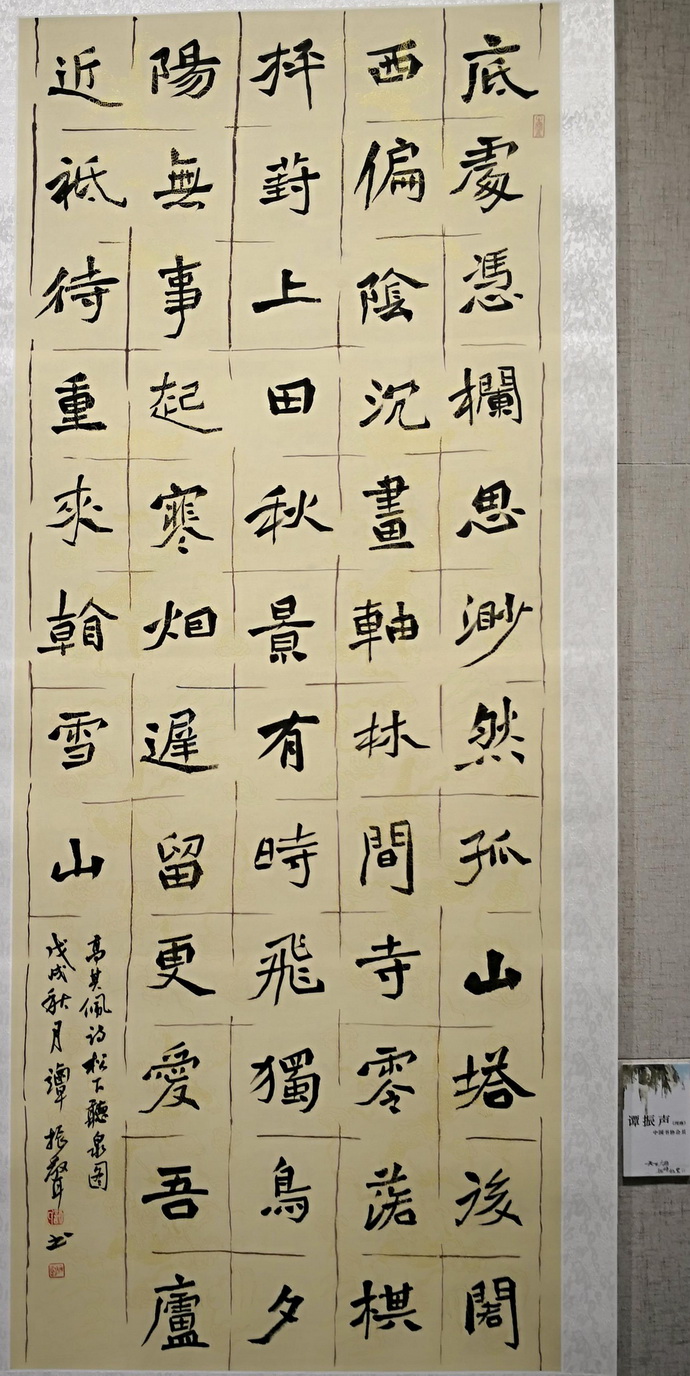 底處憑欄思渺然孤山塔後閣
西偏陰沉畫軸林間寺零落棋
枰葑上田秋景有時飛獨鳥夕
陽無事起寒烟遲留更愛吾廬
近祗待重來看雪山
高其佩诗松下聽泉図
戊戌秋月譚振聲书
谭振声
中国书协会员